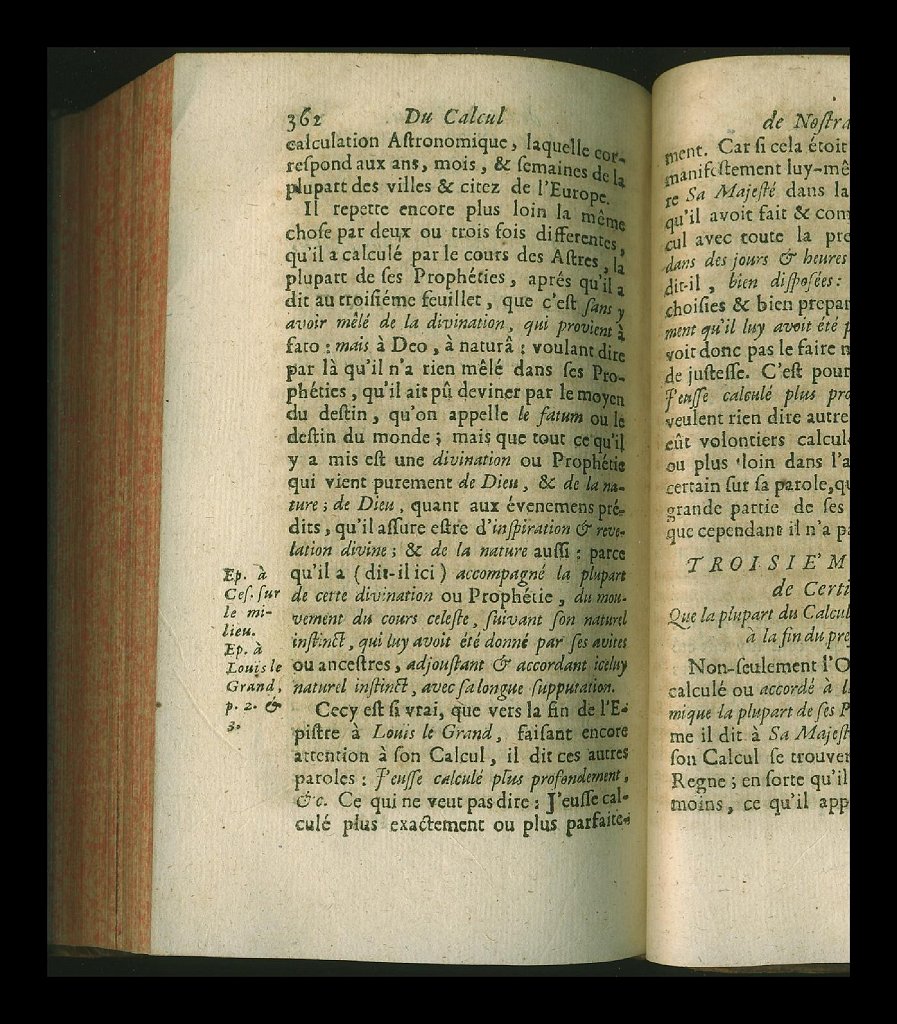 362 Du Calcul
calculation Aſtronomique, laquelle cor-
reſpond aux ans, mois, & ſemaines de la
plupart des villes & citez de l'Europe.
Il repette encore plus loin la même
choſe par deux ou trois fois differentes,
qu'il a calculé par le cours des Aſtres, la
plupart de ſes Prophéties, aprés qu'il a
dit au troiſiéme feuillet, que c'eſt ſans y
avoir mêlé de la divination, qui provient à
fato : mais à Deo, à naturâ : voulant dire
par là qu'il n'a rien mêlé dans ſes Pro-
phéties, qu'il ait pû deviner par le moyen
du deſtin, qu'on appelle le fatum ou le
deſtin du monde ; mais que tout ce qu'il
y a mis eſt une divination ou Prophétie
qui vient purement de Dieu, & de la na-
ture ; de Dieu, quant aux évenemens pré-
dits, qu'il aſſure eſtre d'inſpiration & reve-
lation divine ; & de la nature auſſi : parce
qu'il a ( dit-il ici ) accompagné la plupart
de cette divination ou Prophétie, du mou-
vement du cours celeſte, ſuivant ſon naturel
inſtinct, qui luy avoit été donné par ſes avites
ou anceſtres, adjouſtant & accordant iceluy
naturel inſtinct, avec ſa longue ſupputation.
Cecy eſt ſi vrai, que vers la fin de l'E-
piſtre à Louis le Grand, faiſant encore
attention à ſon Calcul, il dit ces autres
paroles : J'euſſe calculé plus profondement,
&c. Ce qui ne veut pas dire : J'euſſe cal-
culé plus exactement ou plus parfaite-
Ep. à
Ceſ. ſur
le mi-
lieu.
Ep. à
Louis le
Grand,
p. 2. &
3.
de Noſtra
ment. Car ſi cela étoit
manifeſtement luy-mê
re Sa Majeſté dans la
qu'il avoit fait & com
cul avec toute la pre
dans des jours & heures
dit-il, bien diſpoſées :
choiſies & bien prepar
ment qu'il luy avoit été p
voit donc pas le faire n
de juſteſſe. C'eſt pour
J'euſſe calculé plus pro
veulent rien dire autre
eût volontiers calcul
ou plus loin dans l'a
certain ſur ſa parole, qu
grande partie de ſes
que cependant il n'a pa
TROISIE'M
de Certi
Que la plupart du Calcul
à la fin du pre
Non-ſeulement l'O
calculé ou accordé à l
mique la plupart de ſes P
me il dit à Sa Majeſt
ſon Calcul ſe trouver
Regne ; en ſorte qu'il
moins, ce qu'il app